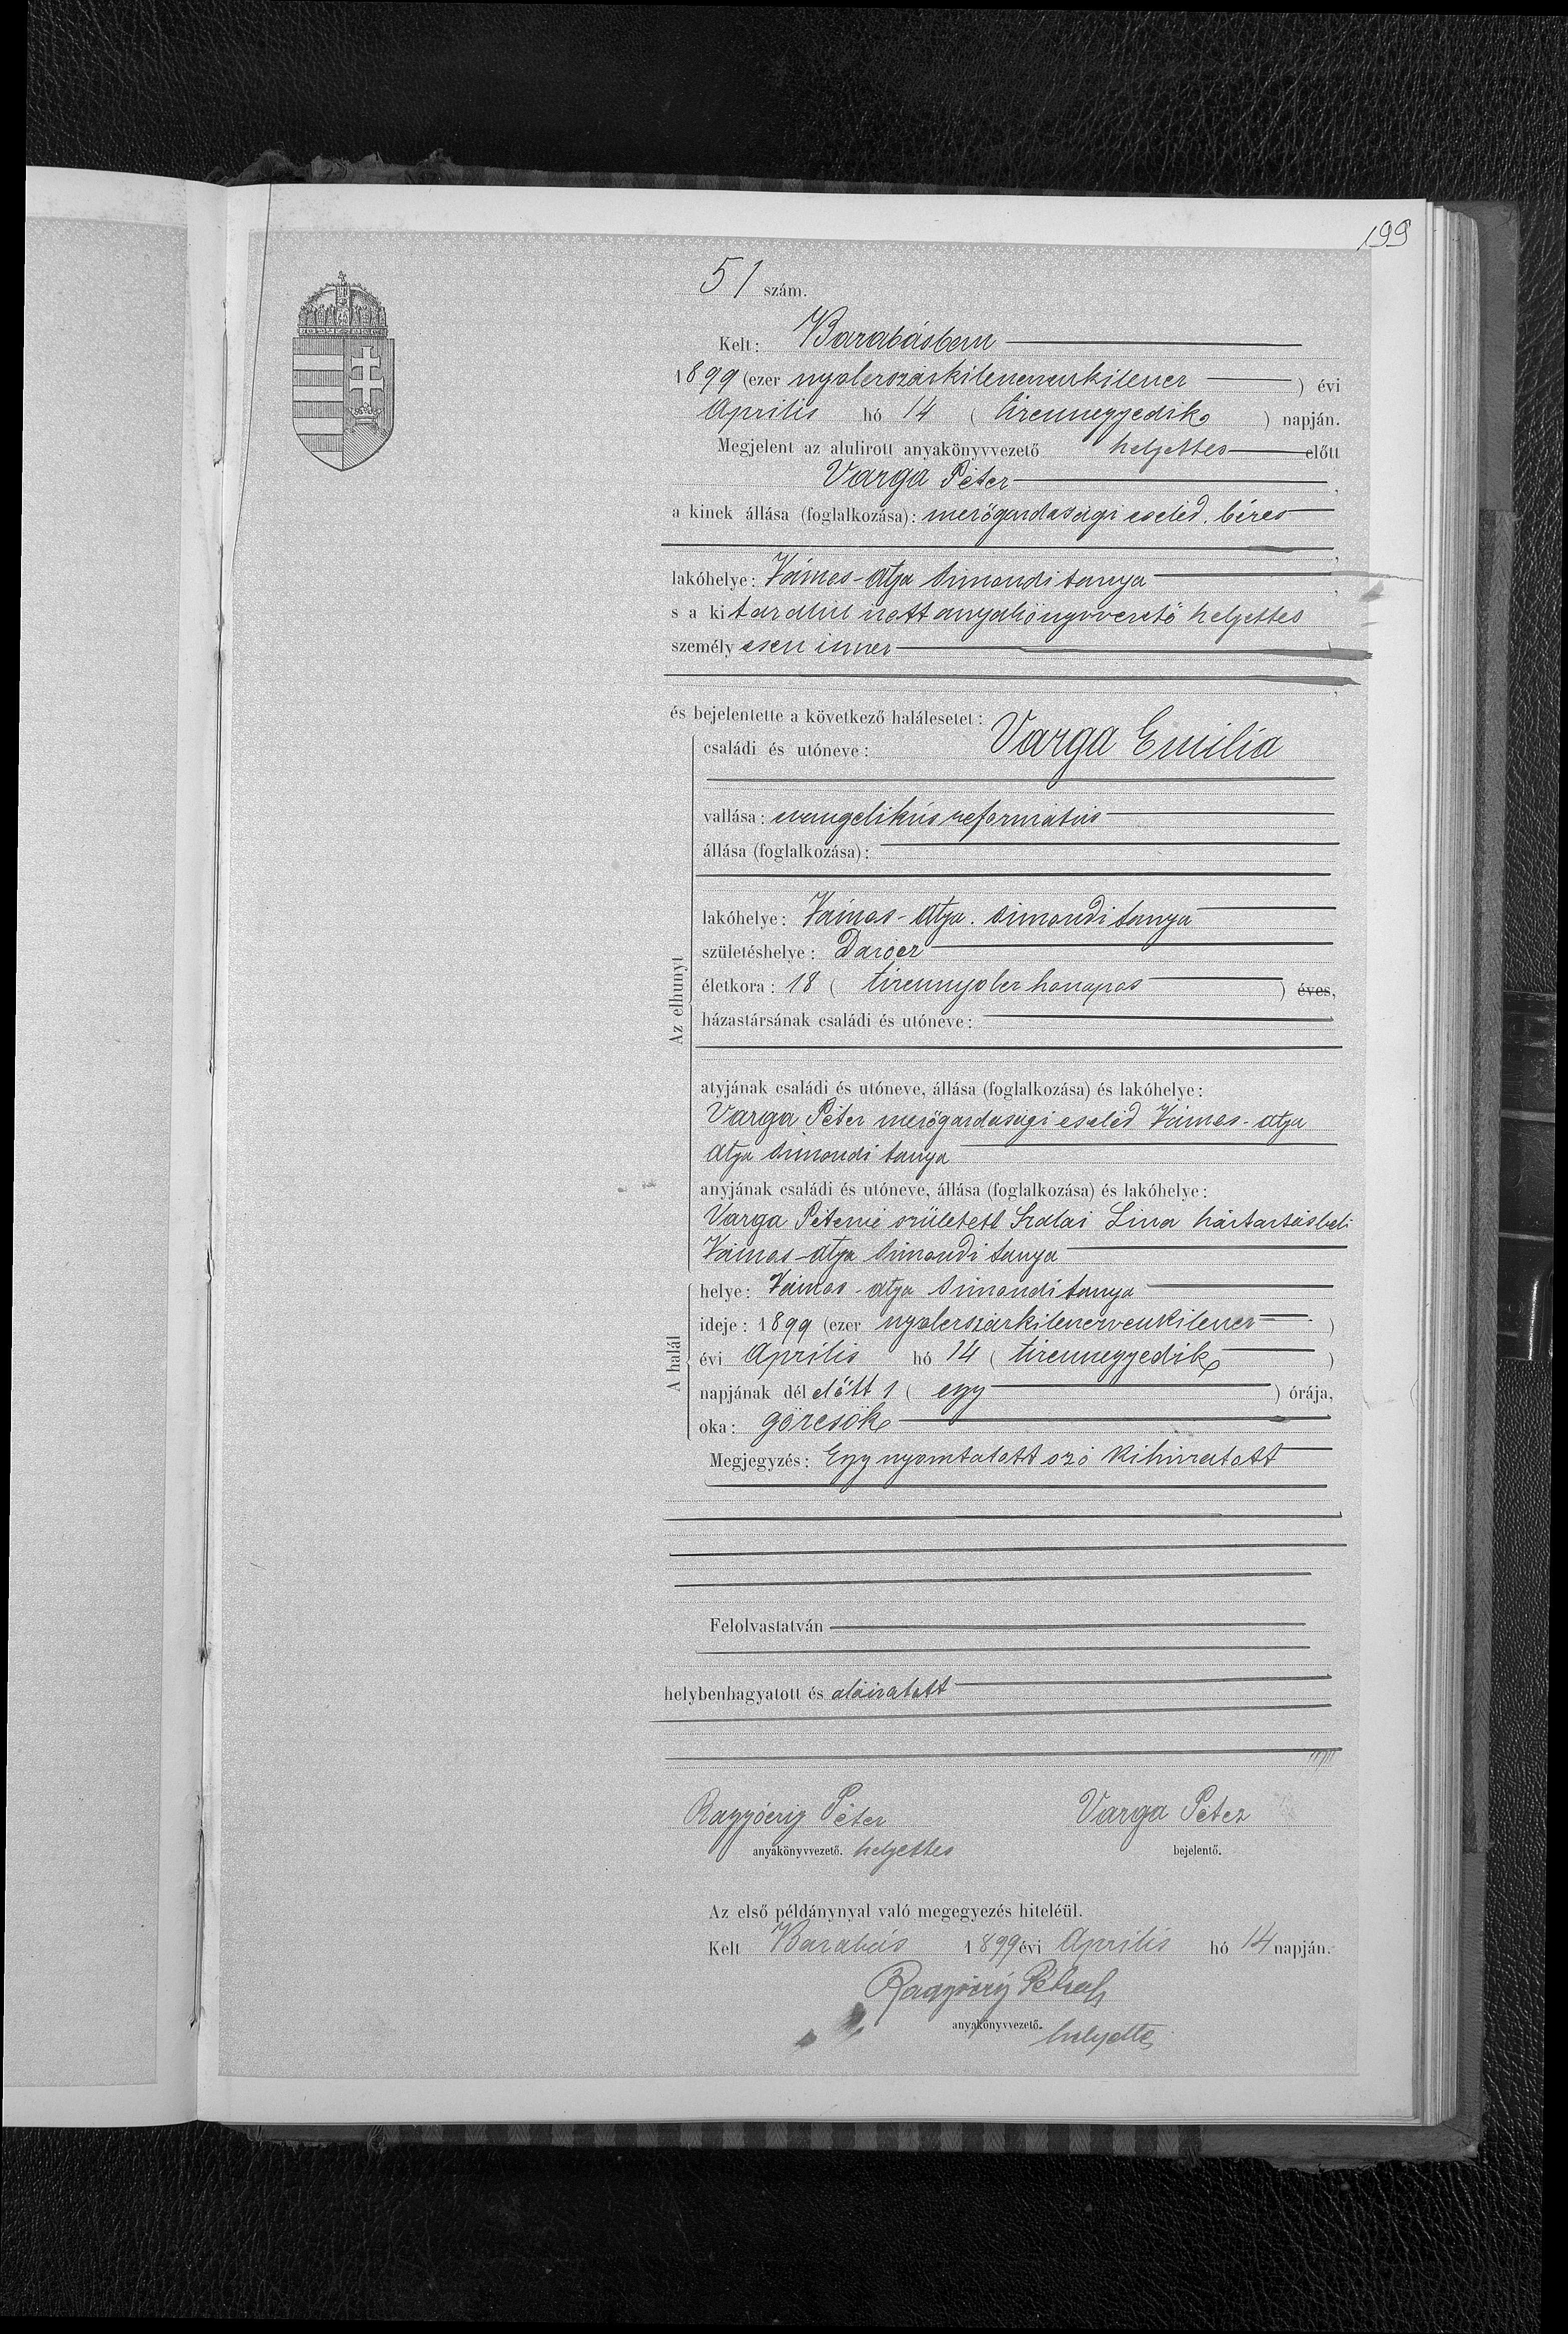 199
51 szám.
Kelt: Barabásban
1899 (ezer nyolczszázkilenczvenkilencz ) évi
Április hó 14 ( tizennegyedik ) napján.
Megjelent az alulirott anyakönyvvezető helyettes előtt
Varga Péter ,
a kinek állása (foglalkozása): mezőgazdasági cseléd. béres
,
lakóhelye: Vámos-Atya Simondi tanya ,
s a kit az alul irott anyakönyvvezető helyettes
személyesen ismer
,
és bejelentette a következő halálesetet:
Az elhunyt
családi és utóneve: Varga Emilia
vallása: evangelikus református
állása (foglalkozása):
lakóhelye: Vámos-Atya. Simondi tanya
születéshelye: Darócz
életkora: 18 ( tizennyolcz hónapos ) éves,
házastársának családi és utóneve:
atyjának családi és utóneve, állása (foglalkozása) és lakóhelye:
Varga Péter mezőgazdasági cseléd Vámos-Atya
Atya Simondi tanya
anyjának családi és utóneve, állása (foglalkozása) és lakóhelye:
Varga Péterné született Szalai Lina háztartásbeli
Vámos-Atya Simondi tanya
A halál
helye: Vámos-Atya Simondi tanya
ideje: 1899 (ezer nyolczszázkilenczvenkilencz )
évi Április hó 14 ( tizennegyedik )
napjának dél előtt 1 ( egy ) órája,
oka: görcsök
Megjegyzés: Egy nyomtatott szó kihúzatott
Felolvastatván
helybenhagyatott és aláiratott
Péter Varga Péter
anyakönyvvezető. helyettes bejelentő.
Az első példánynyal való megegyezés hiteléül.
Kelt Barabás 1899 évi Április hó 14 napján.
anyakönyvvezető. helyettes